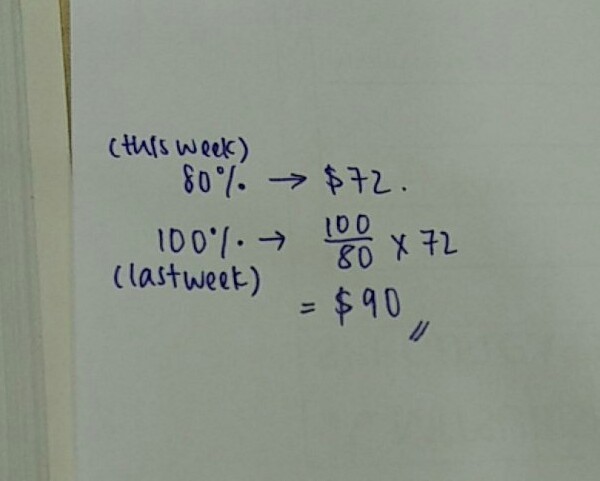 (this week)
80% → $72.
100% → 100/80 × 72
(last week)
= $90 //